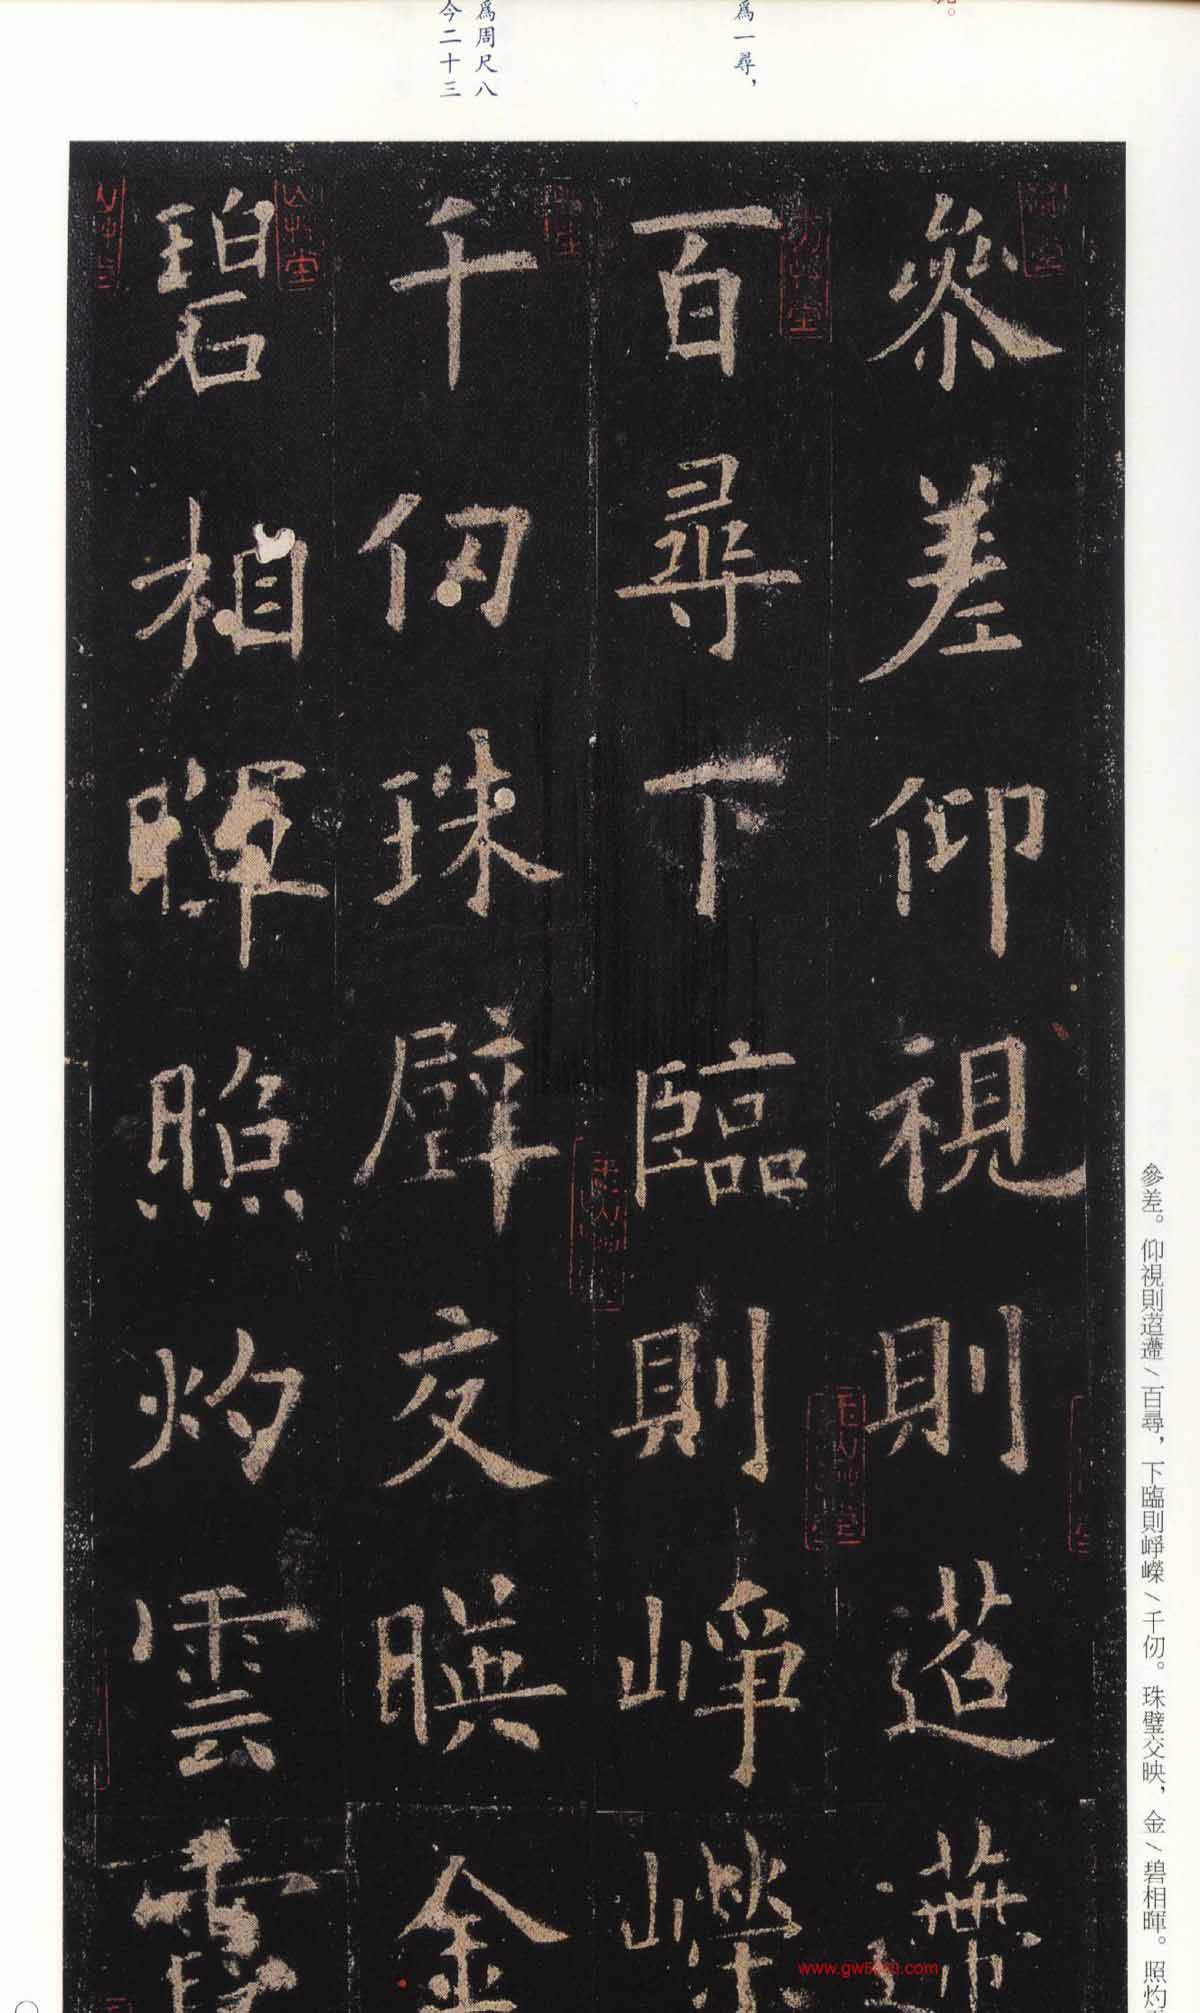 為一尋，
為周尺八
今二十三
參差仰視則迢遰
百尋下臨則崢嶸
千仞珠壁交映金
碧相暉照灼雲霞
參差。仰視則迢遰／百尋，下臨則崢嶸／千仞。珠璧交映，金／碧相暉。照灼
www.gw5